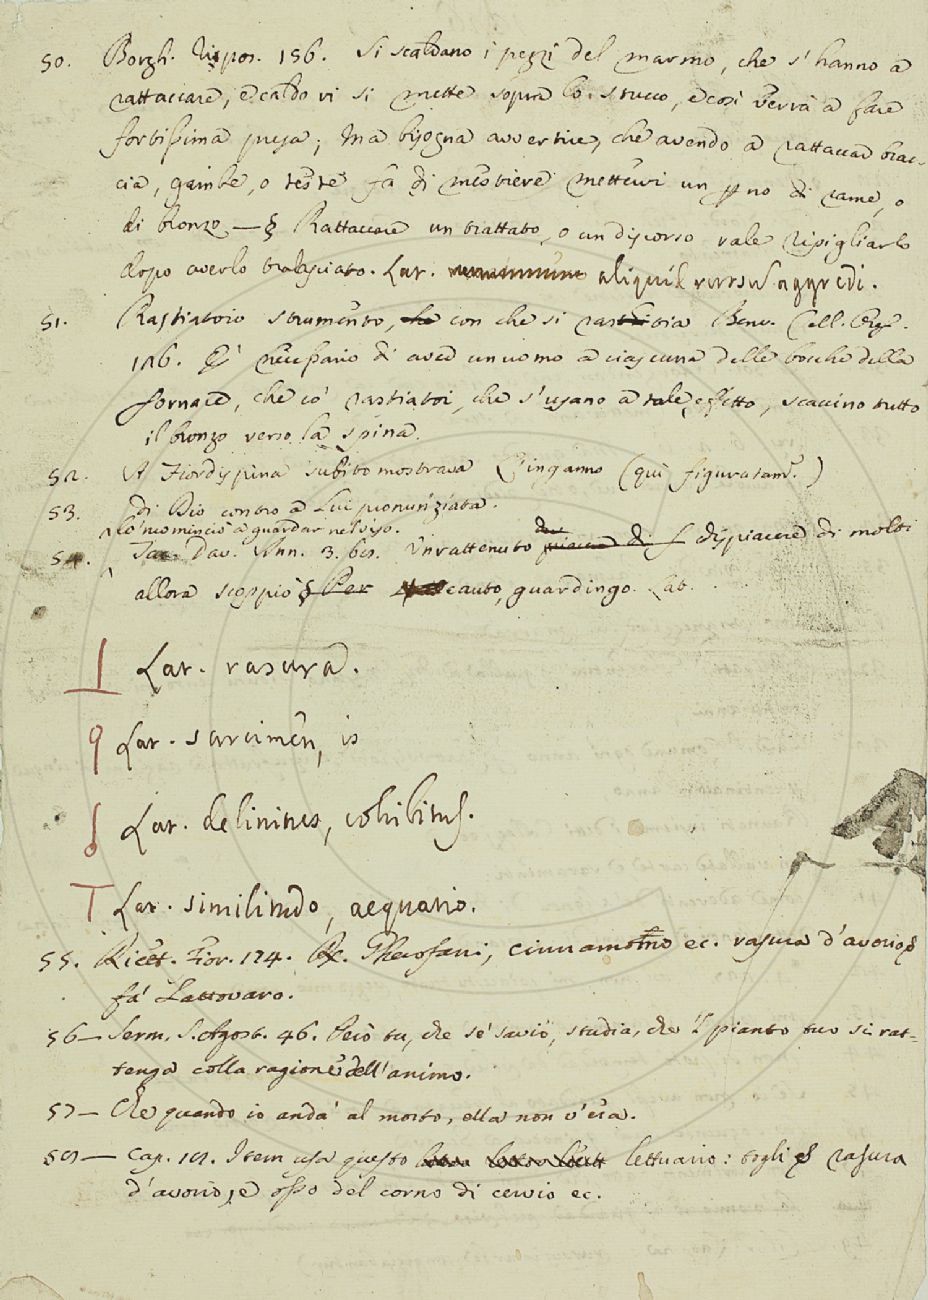 50. Borgh. Ripos. 156. Si scaldano i pezzi del marmo, che s'hanno a
rattaccare, e caldo vi si mette sopra lo stucco, e così verrà a fare
fortissima presa; Ma bisogna avvertire, che avendo a rattaccar brac-
cia, gambe, o teste fa di mestiere mettervi un p no di rame, o
di bronzo — § Rattaccare un trattato, o un discorso vale ripigliarlo
dopo averlo tralasciato. Lat. aliquid rursus aggredi.
51. Rastiatoio strumento, con che si rastia Benv. Cell. Oref.
126. È necessario di aver un uomo a ciascuna delle bocche della
fornace, che co' rastiatoi, che s'usano a tale effetto, scacino tutto
il bronzo verso la spina.
52. A Fiordispina subito mostrava l'inganno (quì figuratam.e)
53. di Dio contro a Lui pronunziata.
e lo 'ncominciò a guardar nel viso.
54. Tac. Dav. Ann. 3. 60. Un rattenuto dispiacere di molti
allora scoppiò § Per cauto, guardingo. Lat.
Lat. rasura.
Lat. sarcimen, is
Lat. delinitus, cohibitus.
Lat. similitudo, aequatio.
55. Ricett. Fior. 174. Rx. Theofani, cinnamomo ec. rasura d'avorio §
fa' Lattovaro.
56 — Serm. S. Agost. 46. Però tu, che se' savio, studia, che 'l pianto tuo si rat-
tenga colla ragione dell'animo.
57 — Che quando io anda' al morto, ella non v'era.
59 — Cap. 101. Item usa questo lettuario: togli rasura
d'avorio, e osso del corno di cervio ec.